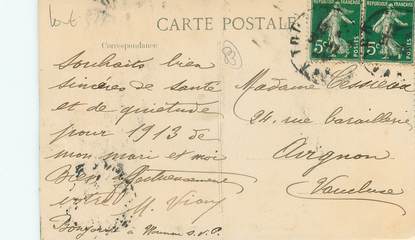 CARTE POSTALE
Correspondance
Souhaits bien
sincères de santé
et de quiétude
pour 1913 de
mon mari et moi
Bien affectueusement
vôtre
Bonjour à Maman s.v.p.
83
Madame
24, rue
Avignon
Vaucluse
REPUBLIQUE FRANCAISE
5c POSTES
REPUBLIQUE FRANCAISE
5c POSTES